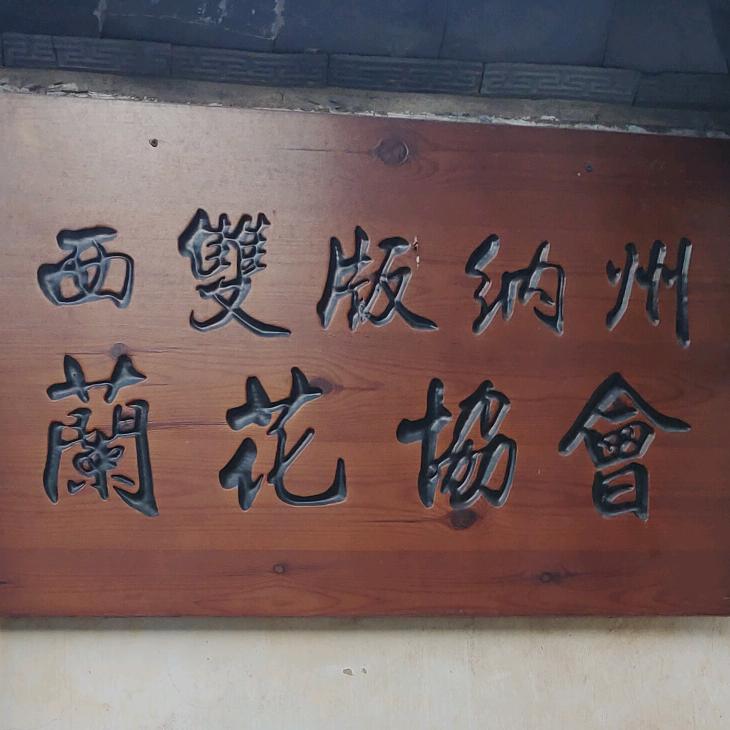 西雙版纳州
蘭花協會